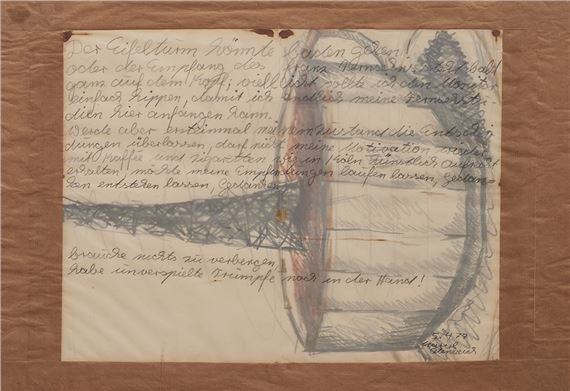 Der Eifelturm könnte baden gehen!
oder der Empfang des franz. Fernsehens steht bald
ganz auf dem Kopf; vielleicht sollte ich den Monitor
einfach kippen, damit ich endlich meine Fernsehstu-
dien hier anfangen kann.
Werde aber ersteinmal meinem Zustand die Entschei
dungen überlassen, darf nicht meine Motivation wieder
mit Kaffe und Zigaretten wie in Köln künstlich aufrecht
erhalten, möchte meine Empfindungen laufen lassen, Gedan-
ken entstehen lassen, Gedanken
brauche nichts zu verbergen
habe unverspielte Trümpfe noch in der Hand!